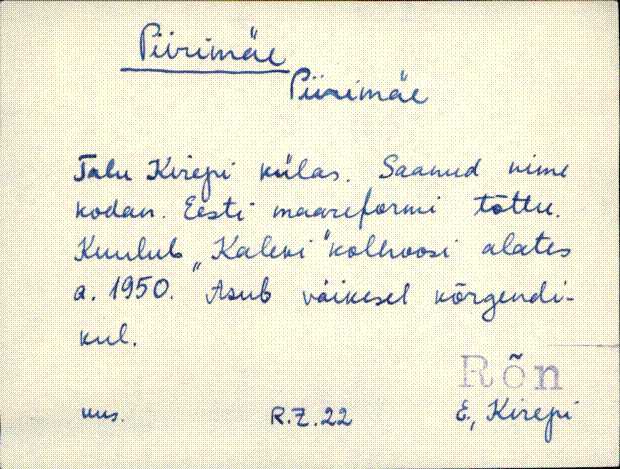 Piirimäe
Piirimäe
Talu Kirepi külas. Saanud nime
kodan. Eesti maareformi tõttu.
Kuulub „Kalevi" kolhoosi alates
a. 1950. Asub väikesel kõrgendi-
kul.
Rõn
uus. R.Z.22 E, Kirepi